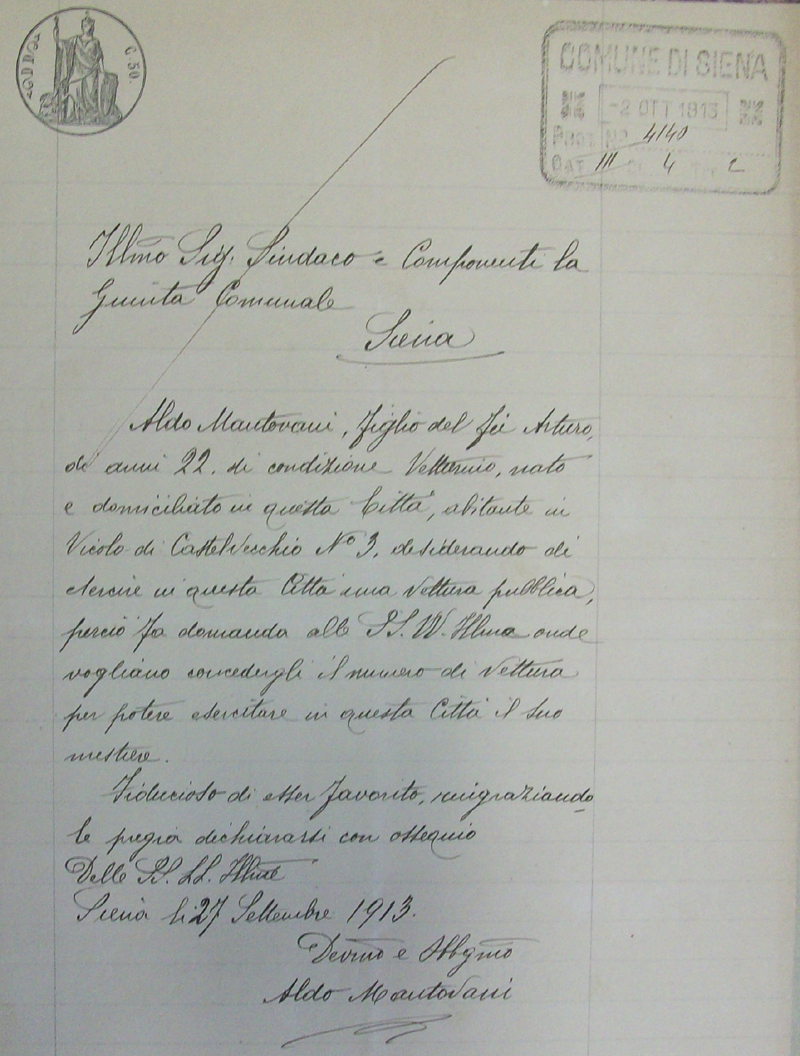 C. 50.
COMUNE DI SIENA
-2 OTT 1913
PROT. No 4140
CAT III CL. 4 2
Illmo Sig. Sindaco e Componenti la
Giunta Comunale
Siena
Aldo Mantovani, figlio del fù Arturo,
di anni 22. di condizione Vetturino, nato
e domiciliato in questa Città, abitante in
Vicolo di Castelvecchio No 3, desiderando di
esercire in questa Città una vettura pubblica,
perciò fa domanda alle SS. VV. Illme onde
vogliano concedergli il numero di Vettura
per potere esercitare in questa Città il suo
mestiere.
Fiducioso di esser favorito, ringraziando
le pregia dichiararsi con ossequio
Delle SS. LL. Illme
Siena li 27 Settembre 1913.
Devmo e Obbgmo
Aldo Mantovani